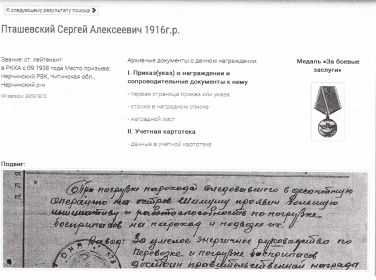 К следующему результату поиска
Пташевский Сергей Алексеевич 1916г.р.
Звание: ст. лейтенант
в РККА с 09.1938 года Место призыва:
Нерчинский РВК, Читинская обл.,
Нерчинский р-н
№ записи
Архивные документы о данном награждении:
I. Приказ(указ) о награждении и
сопроводительные документы к нему
- первая страница приказ или указа
- строка в наградном списке
- наградной лист
II. Учетная картотека
- данные в учетной картотеке
Медаль «За боевые
заслуги»
Подвиг:
При погрузке парохода следовавшего в десантную
операцию на остров Шимушу проявил большую
инициативу и работоспособность по погрузке
боеприпасов на пароход и
Вывод: За умелое энергичное руководство по
перевозке и погрузке боеприпасов
достоин правительственной награда